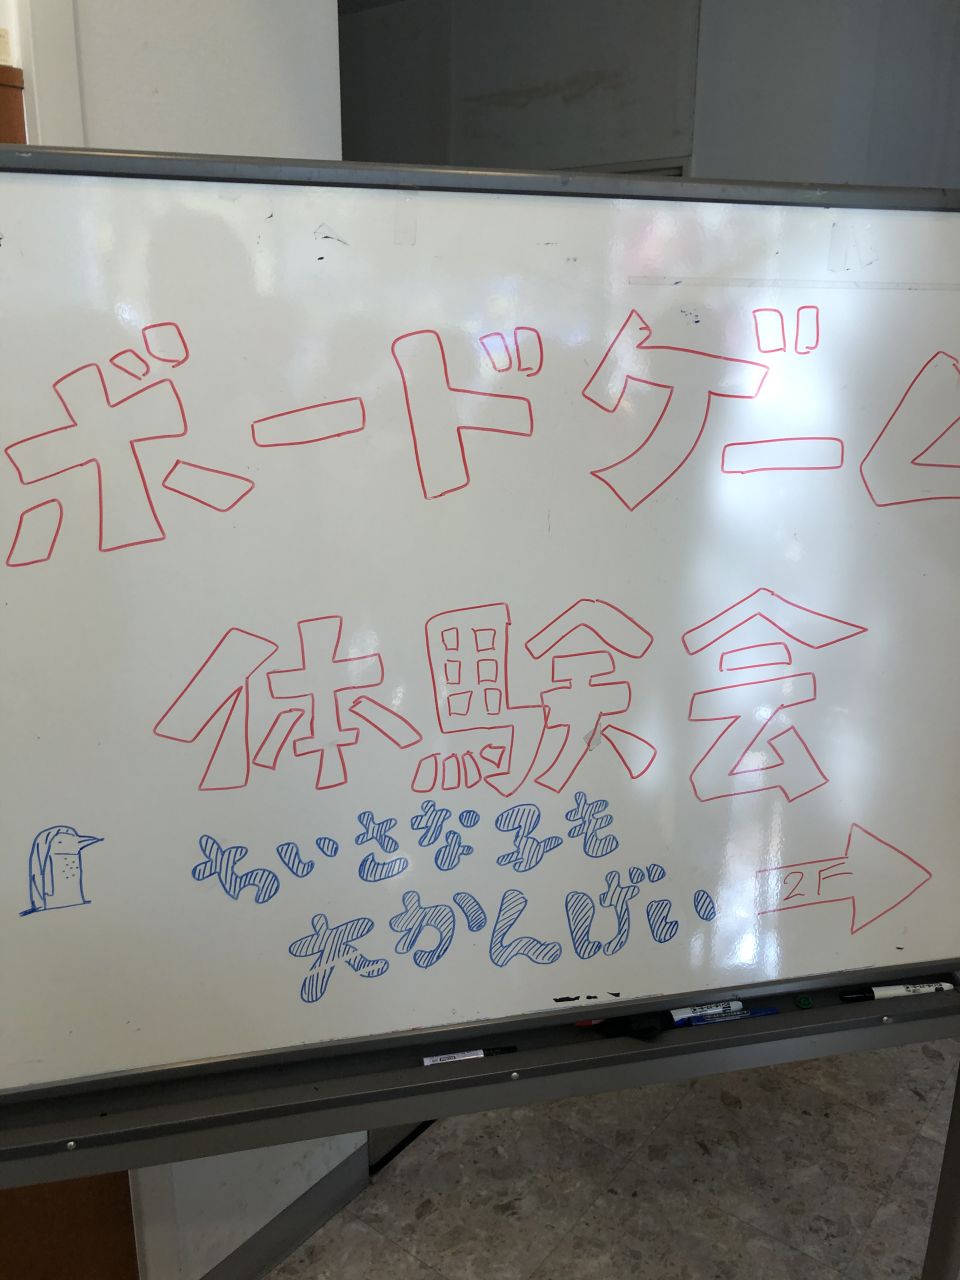 ボードゲーム
体験会
ちいさな子も
大かんげい
2F